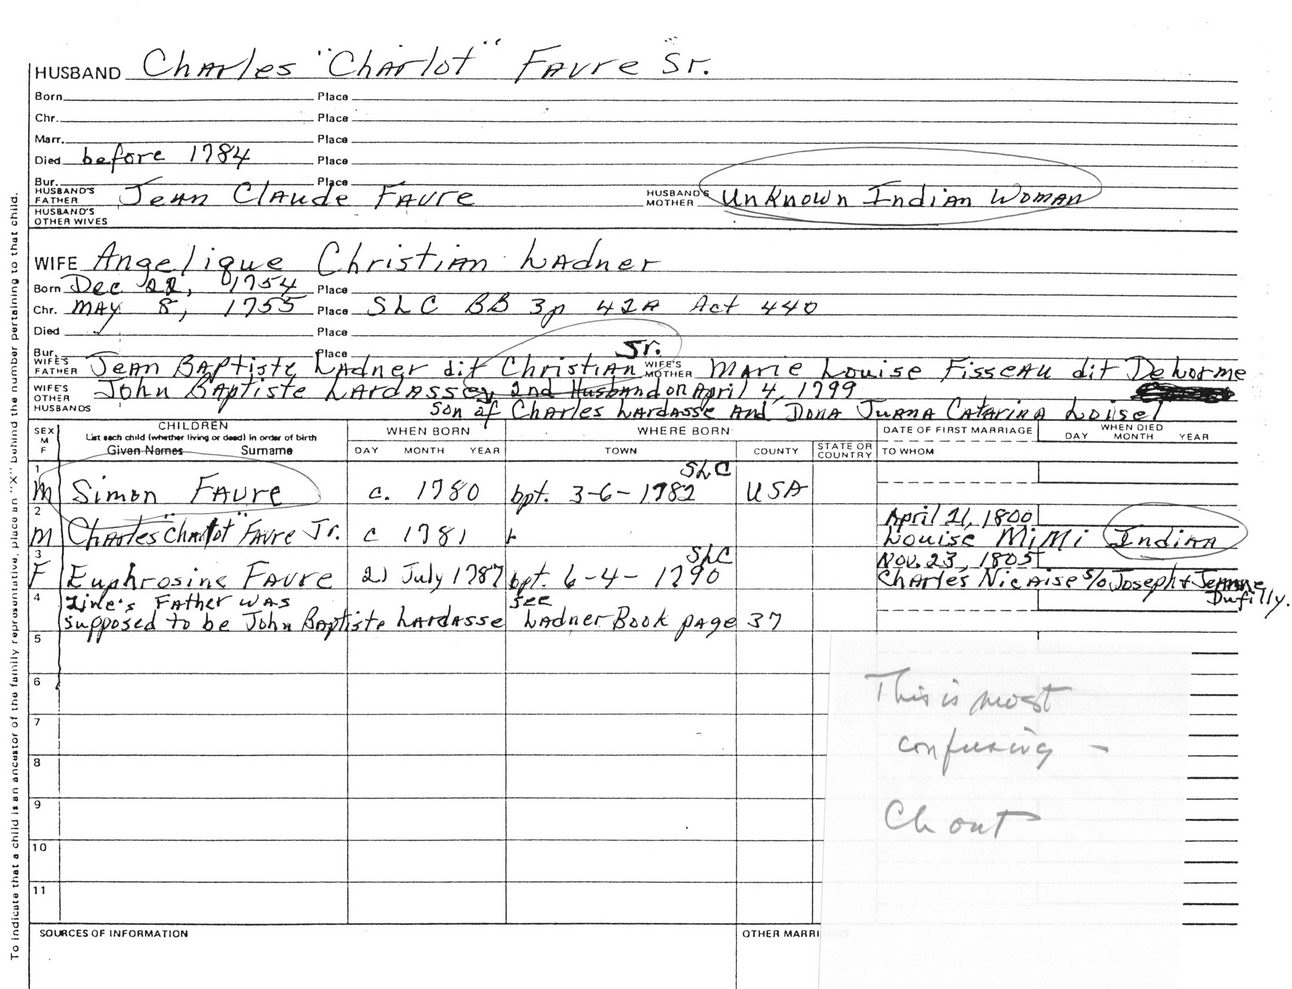 HUSBAND Charles "Charlot" Favre Sr.
Born Place
Chr. Place
Marr. Place
Died before 1784 Place
Bur. Place
HUSBAND'S FATHER Jean Claude Favre HUSBAND'S MOTHER Unknown Indian Woman
HUSBAND'S OTHER WIVES
WIFE Angelique Christian Ladner
Born Dec 22, 1754 Place
Chr. May 8, 1755 Place SLC BB 3p 42A Act 440
Died Place
Bur. Place
WIFE'S FATHER Jean Baptiste Ladner dit Christian Jr. WIFE'S MOTHER Marie Louise Fisseau dit Delorme
WIFE'S OTHER HUSBANDS John Baptiste Lardassey 2nd Husband on April 4, 1799
son of Charles Lardasse and Dona Juana Catarina Loisel
SEX M F CHILDREN WHEN BORN WHERE BORN DATE OF FIRST MARRIAGE WHEN DIED
List each child (whether living or dead) in order of birth
Given Names Surname DAY MONTH YEAR TOWN COUNTY STATE OR COUNTRY TO WHOM DAY MONTH YEAR
1 SLC
M Simon Favre c. 1780 bpt. 3-6-1782 USA
2 April 21, 1800
M Charles "Charlot" Favre Jr. c 1781 Louise MiMi Indian
3 SLC Nov. 23, 1805
F Euphrosine Favre 21 July 1787 bpt. 6-4-1790 Charles Nicaise s/o Joseph + Jeanne Dufilly.
4 Line's Father was see
supposed to be John Baptiste Lardasse Ladner Book page 37
5
6
7
8
9
10
11
This is most
confusing -
Ch out
SOURCES OF INFORMATION OTHER MARRI
To indicate that a child is an ancestor of the family representative, place an "X" behind the number pertaining to that child.